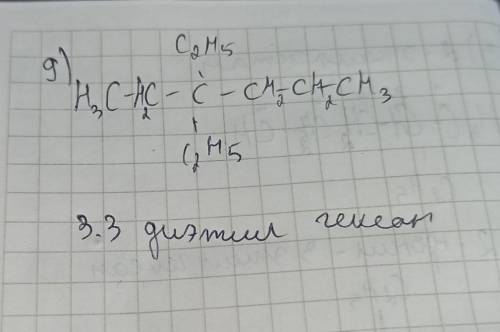 C₂H₅
g) H₃C - H₂C - C - CH₂ - CH₂ CH₃
C₂H₅
3.3 диэтил гексан